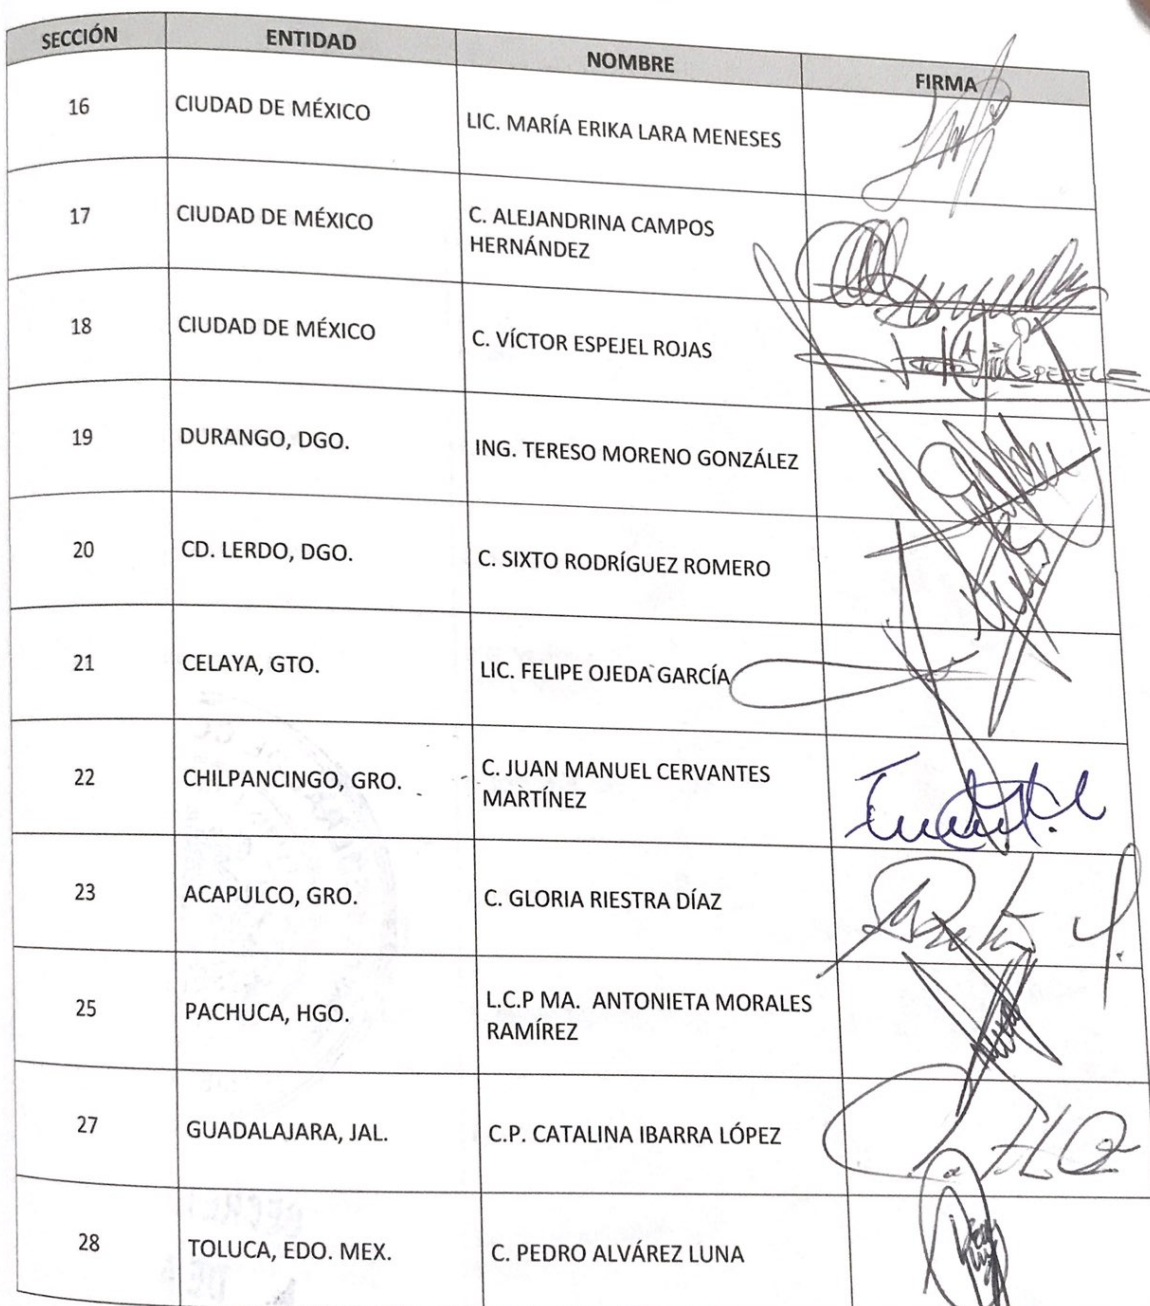 SECCIÓN ENTIDAD NOMBRE FIRMA
16 CIUDAD DE MÉXICO LIC. MARÍA ERIKA LARA MENESES
17 CIUDAD DE MÉXICO C. ALEJANDRINA CAMPOS
HERNÁNDEZ
18 CIUDAD DE MÉXICO C. VÍCTOR ESPEJEL ROJAS
19 DURANGO, DGO. ING. TERESO MORENO GONZÁLEZ
20 CD. LERDO, DGO. C. SIXTO RODRÍGUEZ ROMERO
21 CELAYA, GTO. LIC. FELIPE OJEDA GARCÍA
22 CHILPANCINGO, GRO. C. JUAN MANUEL CERVANTES
MARTÍNEZ
23 ACAPULCO, GRO. C. GLORIA RIESTRA DÍAZ
25 PACHUCA, HGO. L.C.P MA. ANTONIETA MORALES
RAMÍREZ
27 GUADALAJARA, JAL. C.P. CATALINA IBARRA LÓPEZ
28 TOLUCA, EDO. MEX. C. PEDRO ALVÁREZ LUNA